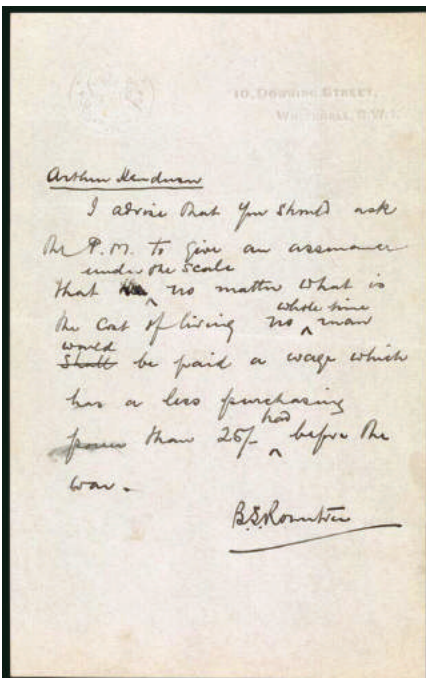 10, DOWNING STREET,
WHITEHALL, S.W.1.
Arthur Henderson
I advise that you should ask
the P.M. to give an assurance
under the scale
that no matter what is
whole time
the cost of living no man
would
Shall be paid a wage which
has a less purchasing
power than 25/- had before the
war.
B.S. Rowntree